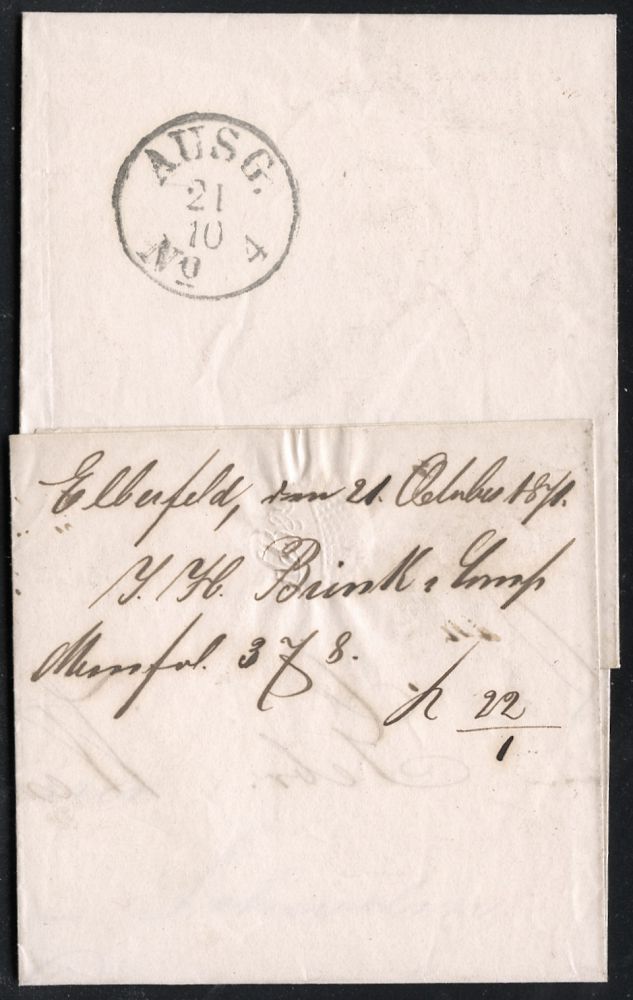 AUSG.
21
10
No 4
Elberfeld, den 21. October 1871.
J. H. Brink & Comp
378.
22
1